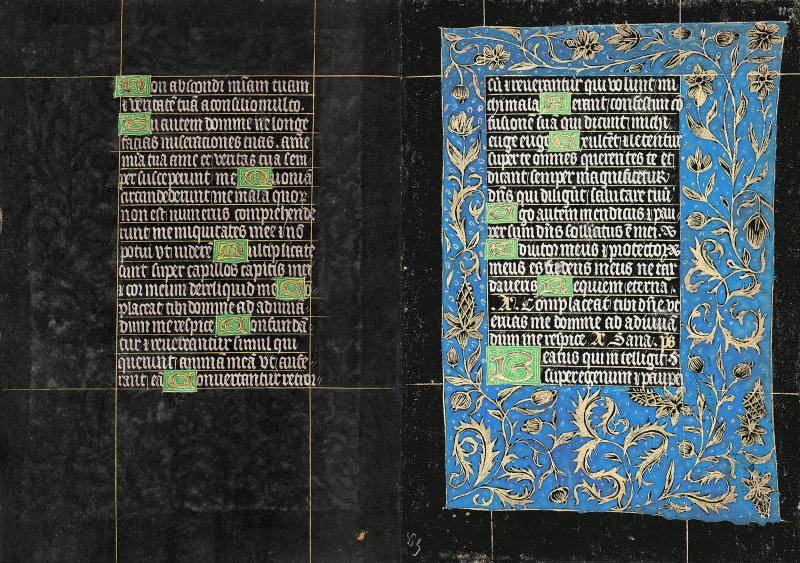 Non abscondi miam tuam
⁊ veritatē tuā a consilio multo.
Tu autem domine ne longe
facias miserationes tuas. a me
mia tua ame et veritas tua sem
per susceperunt me Quoniā
circundederunt me mala quor
non est numerus comprehende
runt me iniquitates mee ⁊ nō
potui vt viderē Multiplicate
sunt super capillos capitis mei
⁊ cor meum dereliquid me Cō
placeat tibi domine ad adiuua
dum me respice Confunda
tur ⁊ reuereantur simul qui
querunt animā meā vt aufe
rant eā Conuertantur retror
sū ⁊ reuereantur qui volunt mi
chi mala Ferant confestim cō
fusionē suā qui dicunt michi
euge euge Exultēt ⁊ letentur
super te omnes querentes te et
dicant semper magnificetur
dn̄s qui diligūt salutare tuū
Ego autem mendicus ⁊ pau
per sum dn̄s sollicitus ē mei.
Adiutor meus ⁊ protector
meus es tu deus meus ne tar
daueris Requiem eterna.
A. Complaceat tibi dn̄e vt
eruas me domine ad adiuuā
dum me respice. Sana. ps
Beatus qui intelligit
super egenum ⁊ paupe